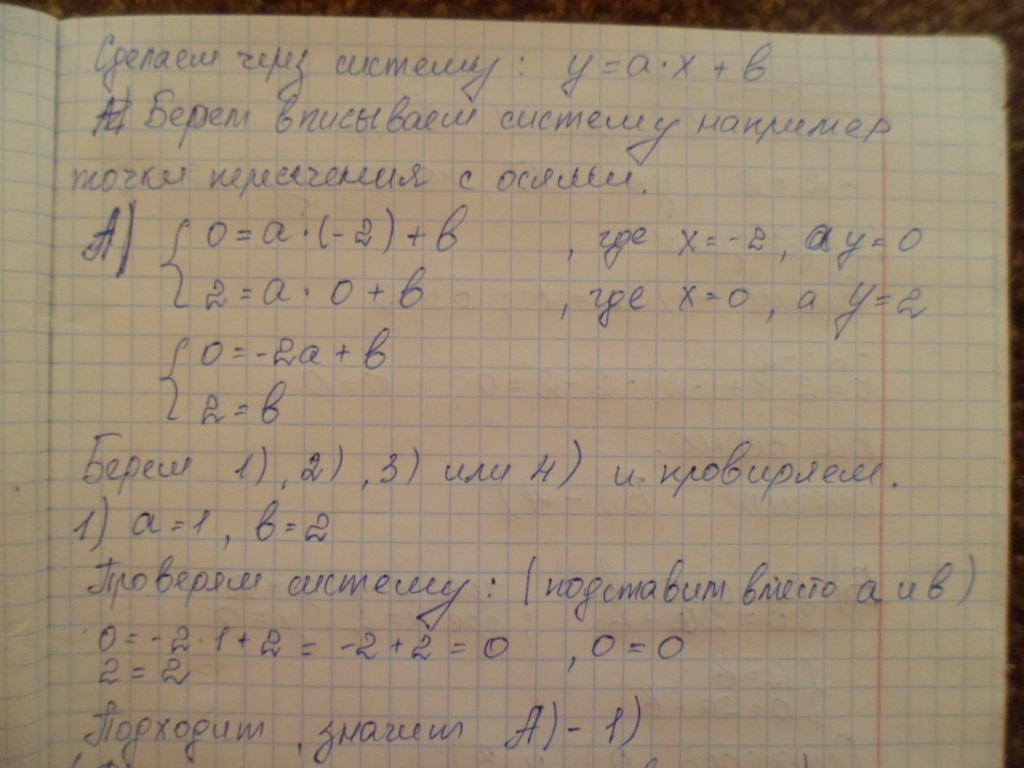 Сделаем через систему: y = a·x + b
Берем вписываем систему например
точки пересечения с осями.
А) { 0 = a·(-2) + b , где x = -2, а y = 0
2 = a·0 + b , где x = 0, а y = 2
{ 0 = -2a + b
2 = b
Берем 1), 2), 3) или 4) и провиряем.
1) a = 1, b = 2
Проверям систему: (подставим вместо a и b)
0 = -2·1 + 2 = -2 + 2 = 0 , 0 = 0
2 = 2
Подходит, значит А) - 1)